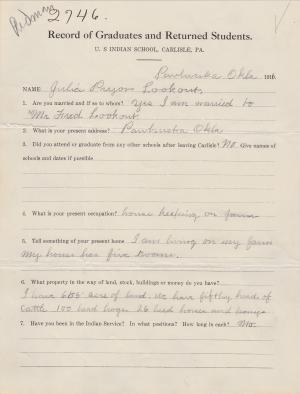 2746.
Record of Graduates and Returned Students.
U. S INDIAN SCHOOL, CARLISLE, PA.
Pawhuska Okla 191
NAME Julia Pryor Lookout,
1. Are you married and if so to whom? Yes I am married to
Mr. Fred Lookout.
2. What is your present address? Pawhuska Okla
3. Did you attend or graduate from any other schools after leaving Carlisle? No. Give names of
schools and dates if possible
4. What is your present occupation? house keeping on farm
5. Tell something of your present home I am living on my farm
my house has five rooms.
6. What property in the way of land, stock, buildings or money do you have?
I have acre of land. we have head of
Cattle 100 head hogs 26 head horses and
7. Have you been in the Indian Service? In what positions? How long in each? No.